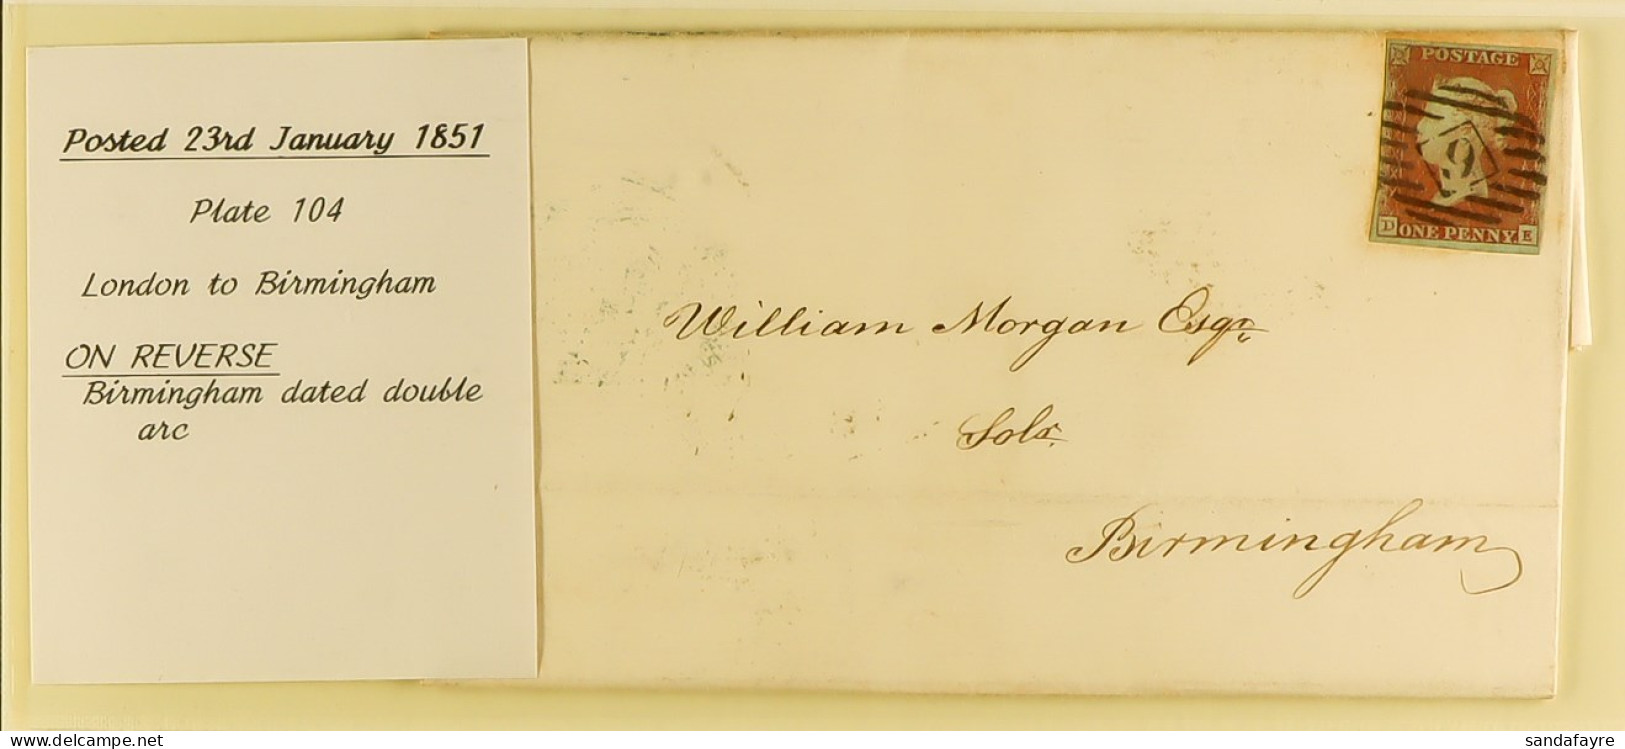 Posted 23rd January 1851
Plate 104
London to Birmingham
ON REVERSE
Birmingham dated double
arc
POSTAGE
9
D ONE PENNY. E
William Morgan Esqr.
Solr.
Birmingham
www.delcampe.net
sandafayre